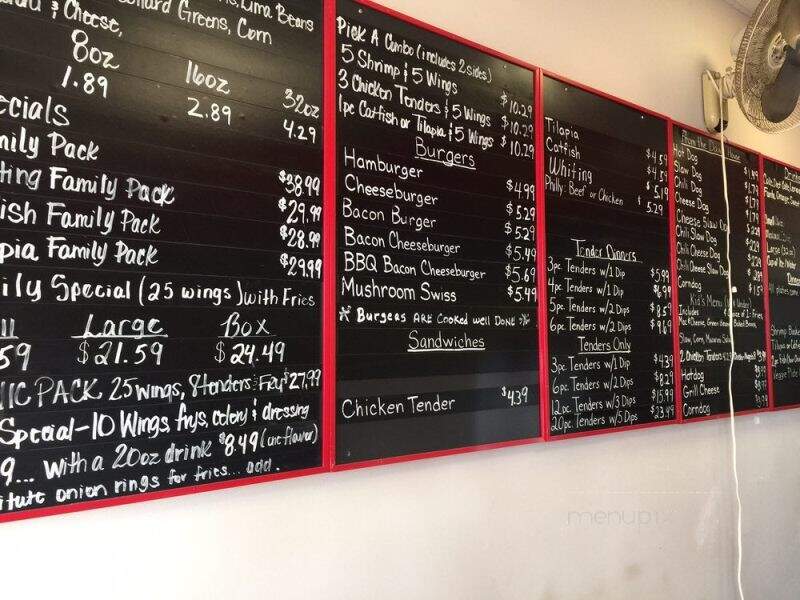 & Cheese, Collard Greens, Corn
Lima Beans
8oz 16oz 32oz
1.89 2.89 4.29
Family Pack
Family Pack $38.99
Family Pack $29.99
Family Pack $28.99
$29.99
Special (25 wings) with Fries
Large Box
$21.59 $24.49
PACK 25 wings, 8 tenders $27.99
Special - 10 Wings, frys, celery & dressing
... with a 20oz drink $8.49 (one flavor)
onion rings for fries... add.
Pick A Combo (includes 2 sides)
5 Shrimp & 5 Wings $10.29
3 Chicken Tenders & 5 Wings $10.29
1pc Catfish or Tilapia & 5 Wings $10.29
Burgers
Hamburger $4.99
Cheeseburger $5.29
Bacon Burger $5.29
Bacon Cheeseburger $5.49
BBQ Bacon Cheeseburger $5.69
Mushroom Swiss $5.49
* Burgers are cooked well done *
Sandwiches
Chicken Tender $4.39
Tilapia $4.59
Catfish $4.59
Whiting $5.19
Philly: Beef or Chicken $5.29
Tender Dinners
3pc Tenders w/1 Dip $5.99
4pc Tenders w/1 Dip $6.99
5pc Tenders w/2 Dips $8.59
6pc Tenders w/2 Dips $9.69
Tenders Only
3pc Tenders w/1 Dip $4.39
6pc Tenders w/2 Dips $8.29
12pc Tenders w/3 Dips $15.99
20pc Tenders w/5 Dips $23.49
From the Dog House
Hot Dog
Slaw Dog
Chili Dog
Cheese Dog
Cheese Slaw Dog
Chili Slaw Dog
Chili Cheese Dog
Chili Cheese Slaw Dog
Corndog
Kid's Menu
Includes Choice of 1: Fries,
Mac & Cheese, Green Beans, Baked Beans,
Slaw, Corn, Macaroni Salad
2 Chicken Tenders
Hotdog
Grill Cheese
Corndog
menupix